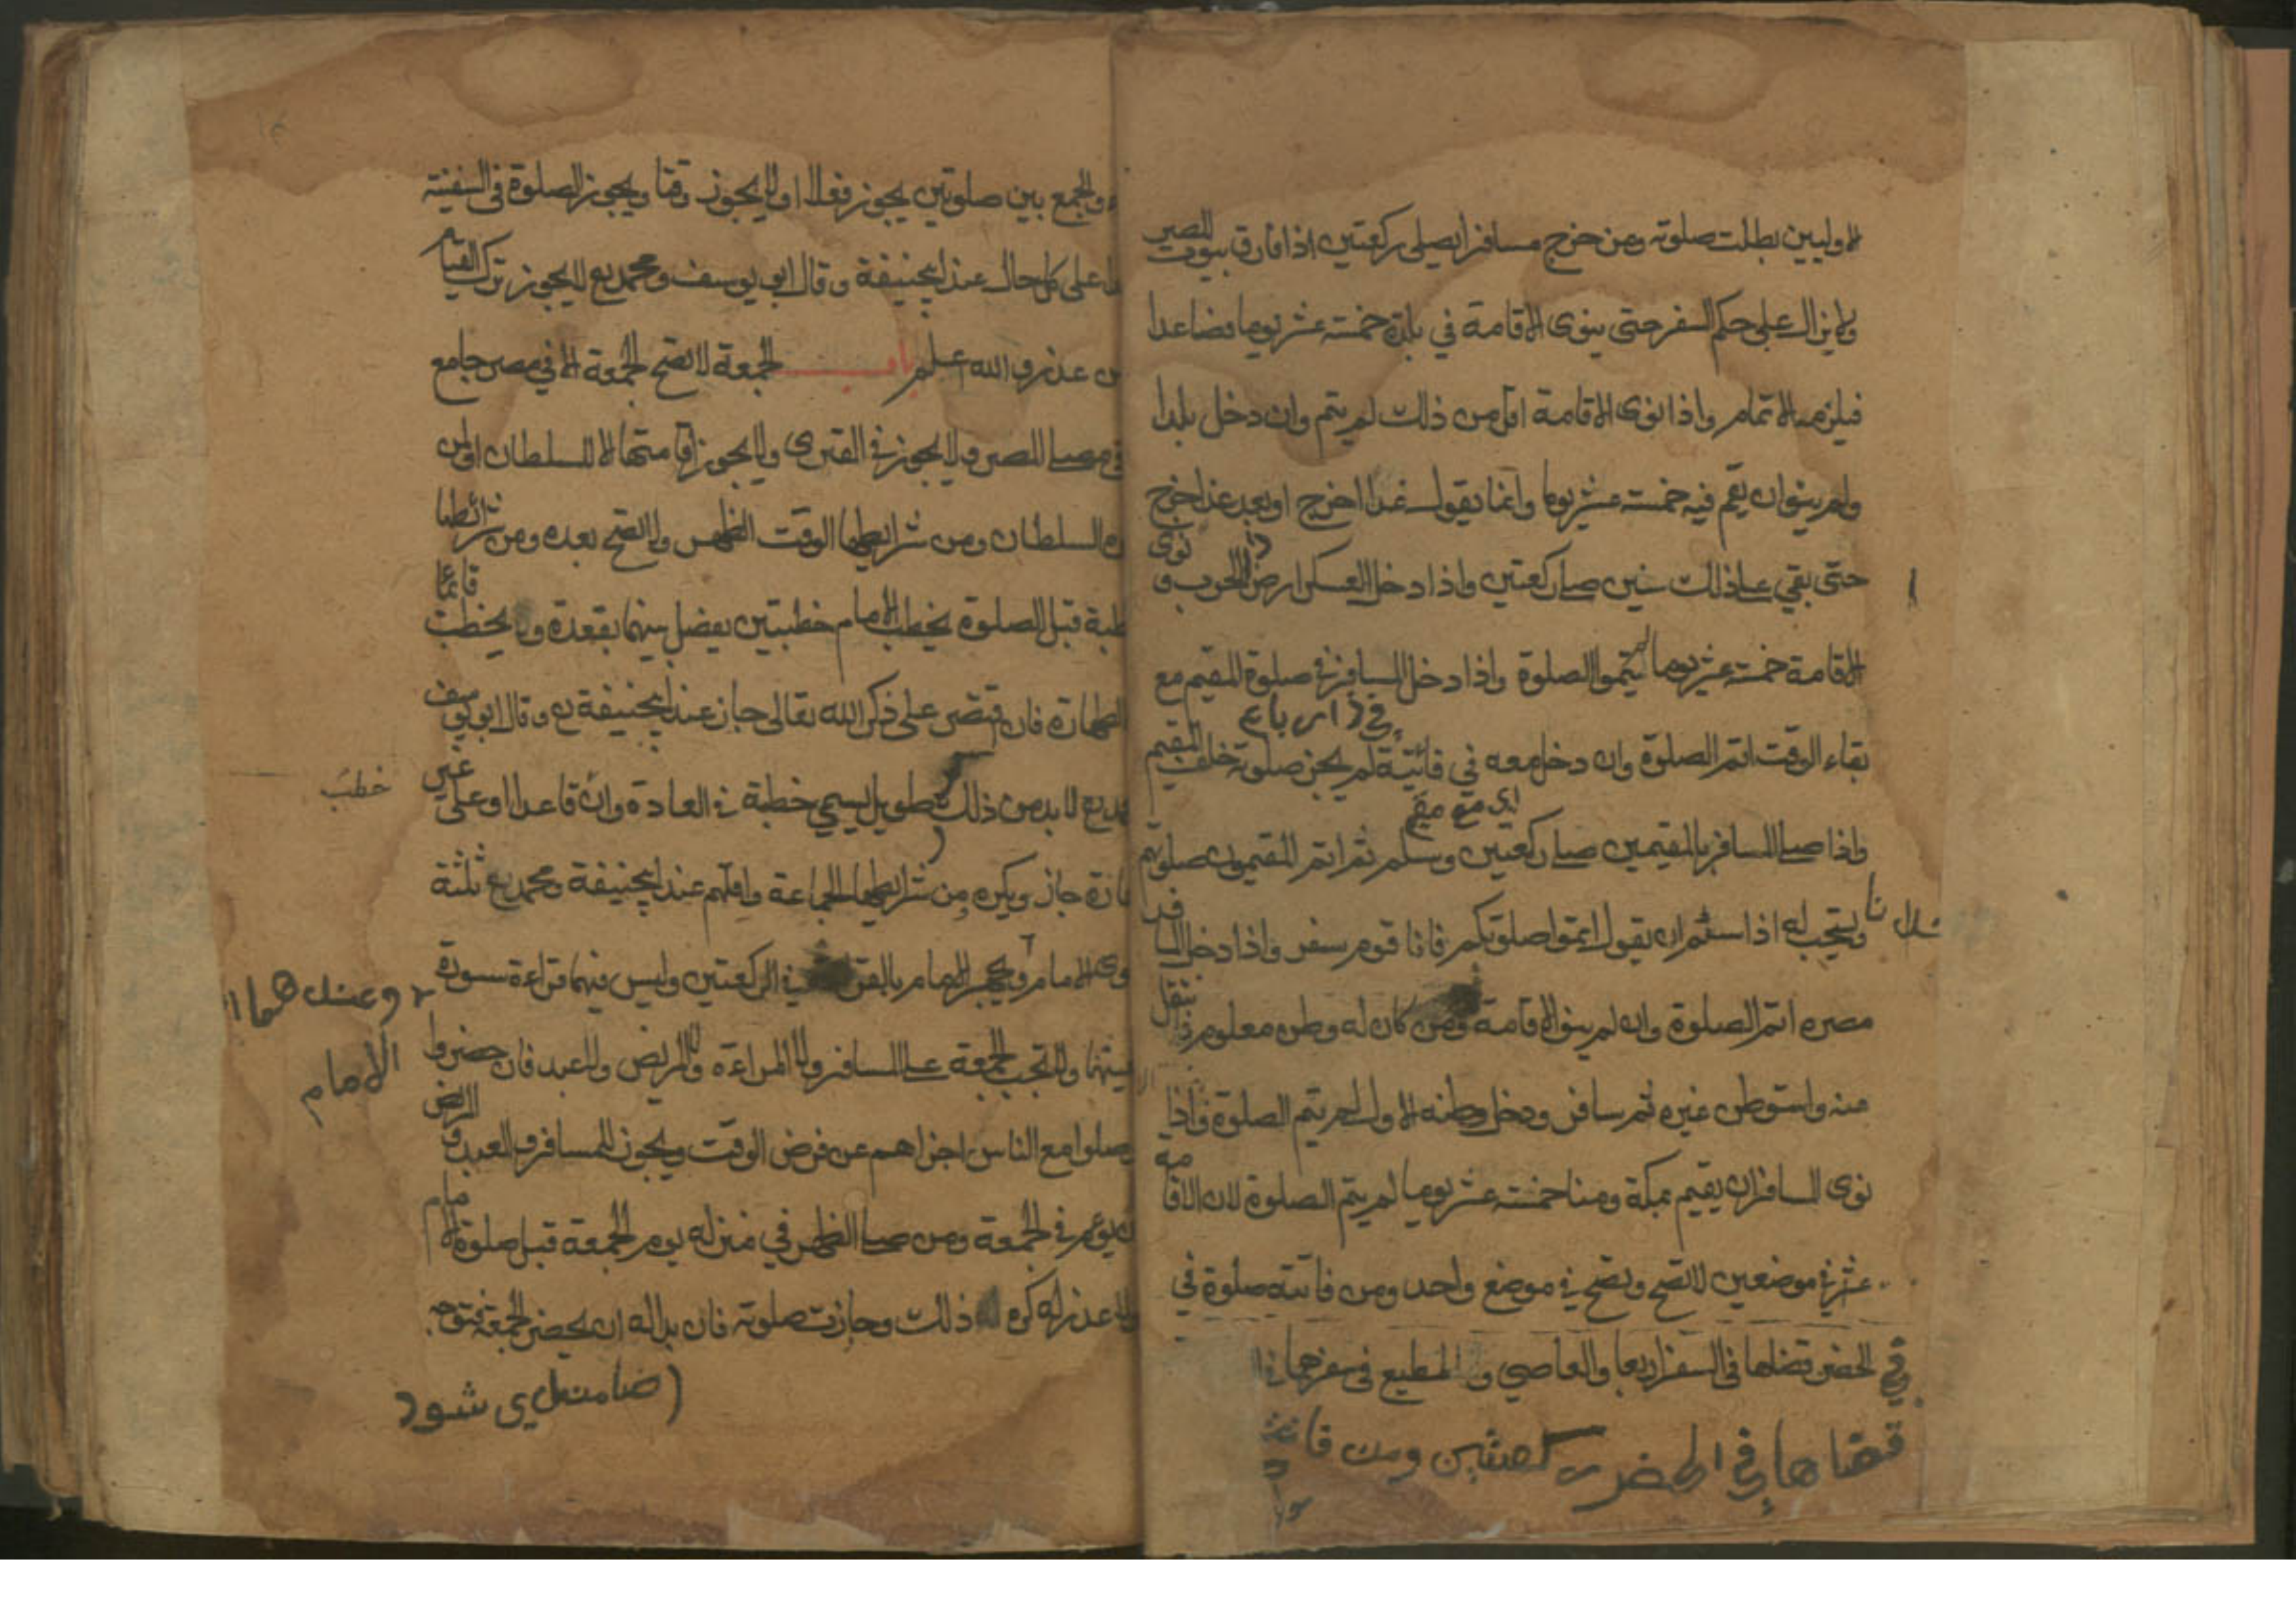 الاوليين بطلت صلوته ومن خرج مسافرا يصلى ركعتين اذا فارق بيوت المصر
ولايزال على حكم السفر حتى ينوى الاقامة في بلدة خمسة عشر يوما فصاعدا
فيلزمه الاتمام واذا نوى الاقامة اقل من ذلك لم يتم وان دخل بلدا
ولم ينو ان يقيم فيه خمسة عشر يوما وانما يقول غدا اخرج او بعد غد اخرج
حتى بقي على ذلك سنين صلى ركعتين واذا دخل العسكر ارض الحرب و نوى
الاقامة خمسة عشر يوما لم يتموا الصلوة واذا دخل المسافر في صلوة المقيم مع
بقاء الوقت اتم الصلوة وان دخل معه في فائتة لم يجز صلوته خلف المقيم
اى مع مقيم
واذا صلى المسافر بالمقيمين صلى ركعتين وسلم ثم اتم المقيمون صلوتهم
ويستحب له اذا سلم ان يقول اتموا صلوتكم فانا قوم سفر واذا دخل المسافر
مصره اتم الصلوة وان لم ينو الاقامة ومن كان له وطن معلوم فانتقل
منه واستوطن غيره ثم سافر ودخل وطنه الاول لم يتم الصلوة واذا
نوى المسافر ان يقيم بمكة ومنا خمسة عشر يوما لم يتم الصلوة لان الاقامة
في موضعين لا تصح وتصح في موضع واحد ومن فاتته صلوة في
الحضر قضاها في السفر اربعا والعاصي و المطيع في سفرهما
قضاها في الحضر ركعتين ومن فاتته
والجمع بين صلوتين يجوز فعلا ولا يجوز وقتا ويجوز الصلوة في السفينة
على كل حال عند ابيحنيفة وقال ابو يوسف ومحمد رح لا يجوز ترك القيام
من عذر والله اعلم باب الجمعة لا تصح الجمعة الا في مصر جامع
في مصلى المصر ولا يجوز في القرى ولا يجوز اقامتها الا للسلطان او لمن
السلطان ومن شرايطها الوقت الظهر ولا تصح بعده ومن شرائطها
خطبة قبل الصلوة يخطب الامام خطبتين يفصل بينهما بقعدة و يخطب قائما
الطهارة فان اقتصر على ذكر الله تعالى جاز عند ابيحنيفة رح وقال ابو يوسف
لابد من ذلك طويل يسمى خطبة في العادة وان قاعدا او على غير
خطب
جاز ويكره ومن شرايطها الجماعة واقلهم عند ابيحنيفة ومحمد رح ثلثة
سوى الامام ويجهر الامام بالقراءة في الركعتين وليس فيهما قراءة سورة
وعندهما
الامام
ولا تجب الجمعة على المسافر ولا المراءة ولا المريض والعبد فان حضروا
وصلوا مع الناس اجزاهم عن فرض الوقت ويجوز للمسافر والعبد و المريض
ان يؤم في الجمعة ومن صلى الظهر في منزله يوم الجمعة قبل صلوة الامام
ولا عذر له كره له ذلك وجازت صلوته فان بدا له ان يحضر الجمعة فتوجه